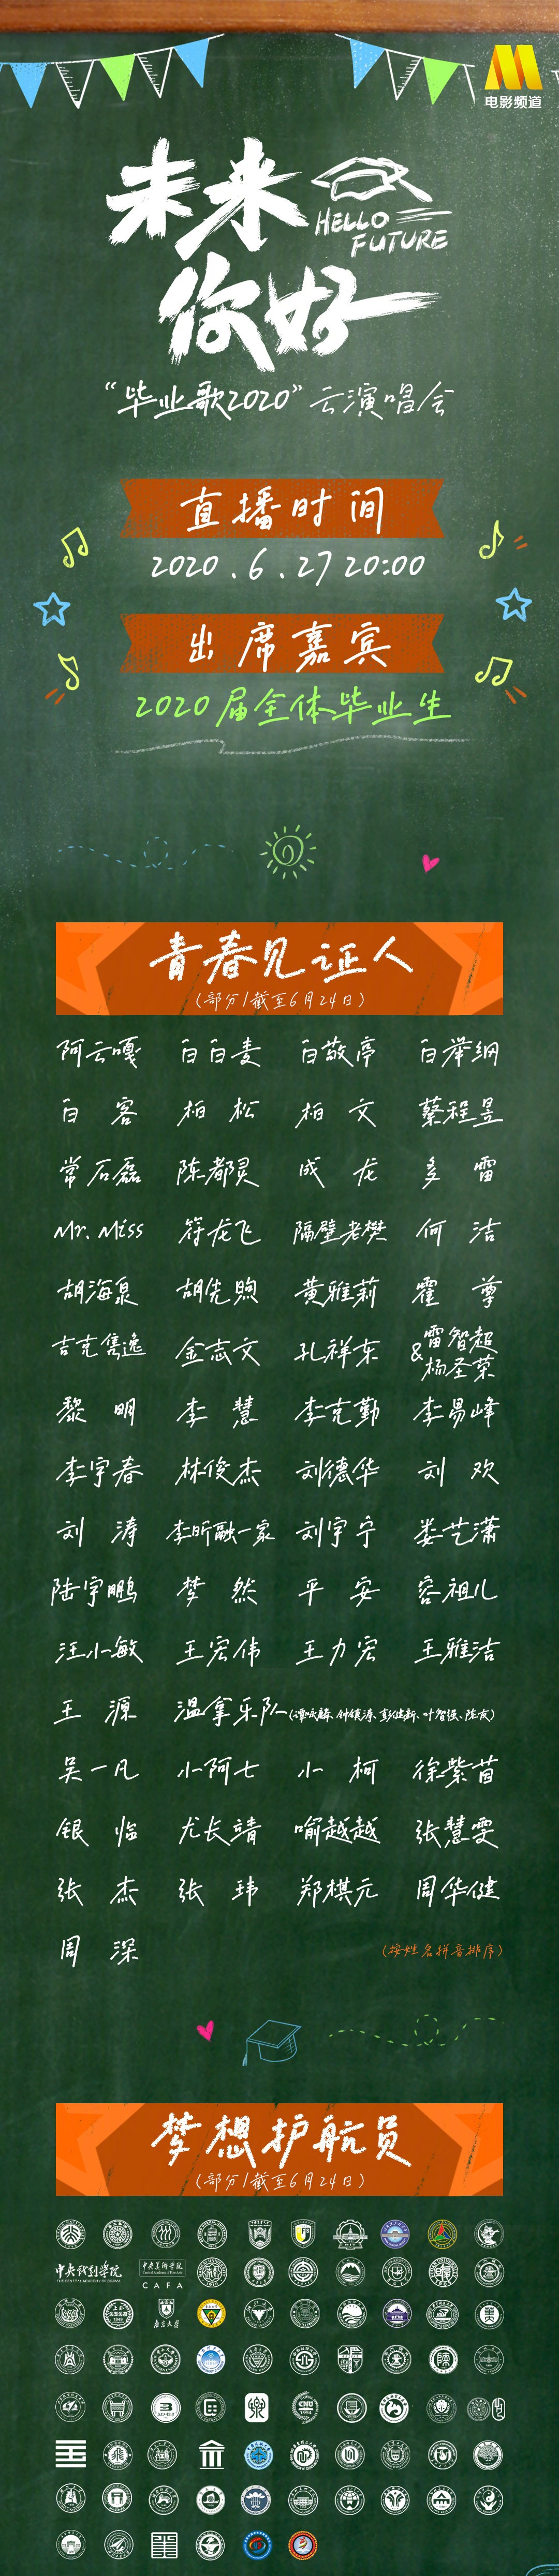 电影频道
未来
HELLO
FUTURE
你好
“毕业歌2020”云演唱会
直播时间
2020.6.27 20:00
出席嘉宾
2020届全体毕业生
青春见证人
(部分/截至6月24日)
阿云嘎 白白麦 白敬亭 白举纲
白客 柏松 柏文 蔡程昱
常石磊 陈都灵 成龙 多雷
Mr. Miss 符龙飞 隔壁老樊 何洁
胡海泉 胡先煦 黄雅莉 霍尊
吉克隽逸 金志文 孔祥东 雷智超
&杨圣荣
黎明 李慧 李克勤 李易峰
李宇春 林俊杰 刘德华 刘欢
刘涛 李昕融一家 刘宇宁 娄艺潇
陆宇鹏 梦然 平安 容祖儿
汪小敏 王宏伟 王力宏 王雅洁
王源 温拿乐队(谭咏麟、钟镇涛、彭健新、叶智强、陈友)
吴一凡 小阿七 小柯 徐紫茵
银临 尤长靖 喻越越 张慧雯
张杰 张玮 郑棋元 周华健
周深
(按姓名拼音排序)
梦想护航员
(部分/截至6月24日)
中央戏剧学院
THE CENTRAL ACADEMY OF DRAMA
中央美术学院
CAFA
南京大学
CNU
1954